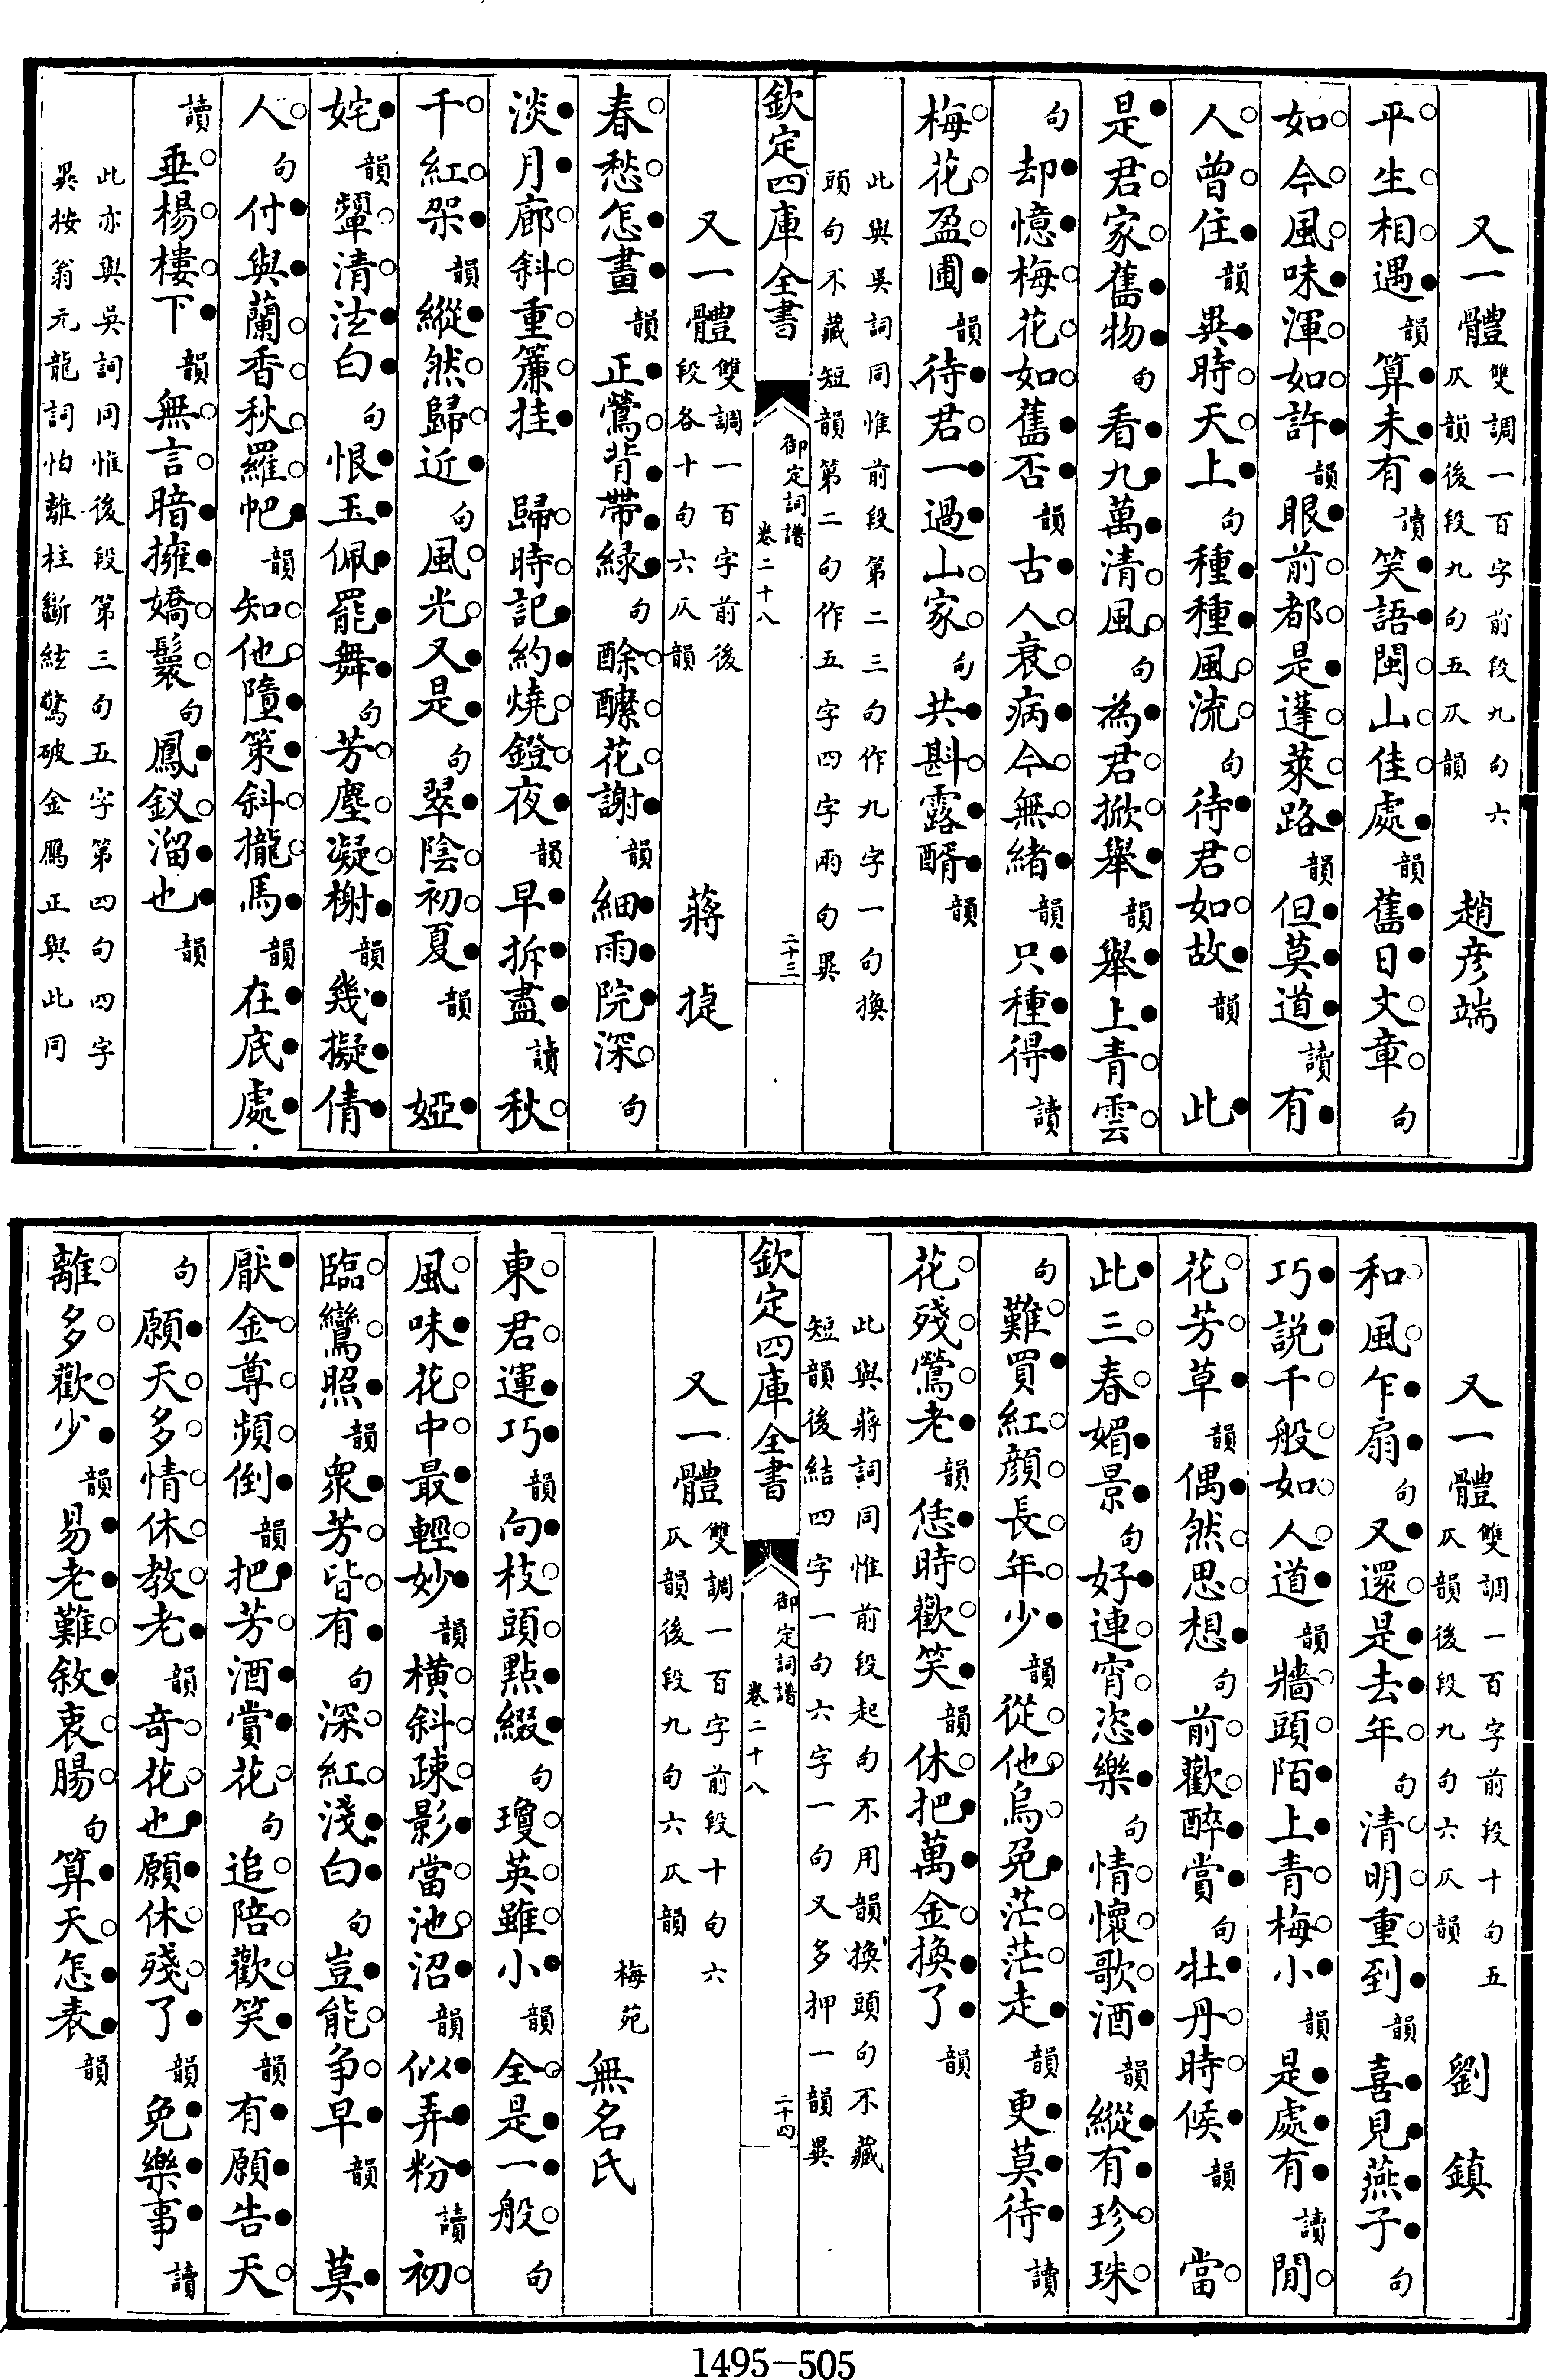 又一體雙調一百字前段九句六仄韻後段九句五仄韻 趙彦端
平生相遇韻算未有讀笑語閩山佳處韻舊日文章句
如今風味渾如許韻眼前都是蓬萊路韻但莫道讀有
人曾住韻異時天上句種種風流句待君如故韻 此
是君家舊物句看九萬清風句為君掀舉韻舉上青雲
句却憶梅花如舊否韻古人衰病今無緒韻只種得讀
梅花盈圃韻待君一過山家句共斟露醑韻
此與吳詞同惟前段第二三句作九字一句換
頭句不藏短韻第二句作五字四字兩句異
欽定四庫全書 御定詞譜卷二十八 二十三
又一體雙調一百字前後段各十句六仄韻 蔣捷
春愁怎畫韻正鶯背帶綠句酴醿花謝韻細雨院深句
淡月廊斜重簾挂 歸時記約燒鐙夜韻早拆盡讀秋
千紅架韻縱然歸近句風光又是句翠陰初夏韻 婭
姹韻嚲清泫白句恨玉佩罷舞句芳塵凝榭韻幾擬倩
人句付與蘭香秋羅帊韻知他墮策斜攏馬韻在底處
讀垂楊樓下韻無言暗擁嬌鬟句鳳釵溜也韻
此亦與吳詞同惟後段第三句五字第四句四字
異按翁元龍詞怕離柱斷絃驚破金鴈正與此同
又一體雙調一百字前段十句五仄韻後段九句六仄韻 劉鎮
和風乍扇句又還是去年句清明重到韻喜見燕子句
巧說千般如人道韻牆頭陌上青梅小韻是處有讀閒
花芳草韻偶然思想句前歡醉賞句牡丹時候韻 當
此三春媚景句好連宵恣樂句情懷歌酒韻縱有珍珠
句難買紅顔長年少韻從他烏兔茫茫走韻更莫待讀
花殘鶯老韻恁時歡笑韻休把萬金換了韻
此與蔣詞同惟前段起句不用韻換頭句不藏
短韻後結四字一句六字一句又多押一韻異
欽定四庫全書 御定詞譜卷二十八 二十四
又一體雙調一百字前段十句六仄韻後段九句六仄韻
梅苑無名氏
東君運巧韻向枝頭點綴句瓊英雖小韻全是一般句
風味花中最輕妙韻橫斜疎影當池沼韻似弄粉讀初
臨鸞照韻衆芳皆有句深紅淺白句豈能争早韻 莫
厭金尊頻倒韻把芳酒賞花句追陪歡笑韻有願告天
句願天多情休教老韻奇花也願休殘了韻免樂事讀
離多歡少韻易老難敘衷腸句算天怎表韻
1495-505